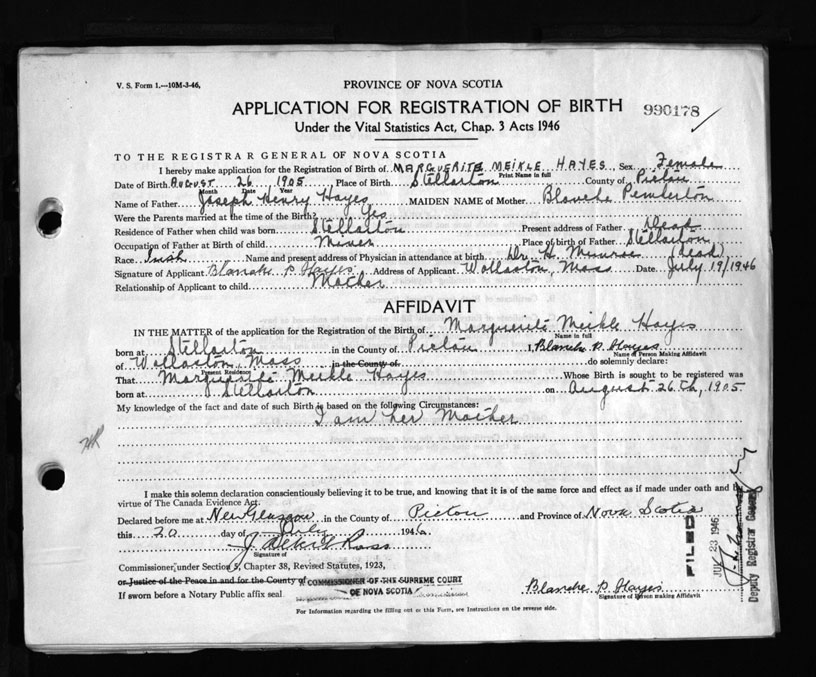 V. S. Form 1.—10M-3-46,
PROVINCE OF NOVA SCOTIA
APPLICATION FOR REGISTRATION OF BIRTH
990178
Under the Vital Statistics Act, Chap. 3 Acts 1946
TO THE REGISTRAR GENERAL OF NOVA SCOTIA
I hereby make application for the Registration of Birth of MARGUERITE MEIKLE HAYES Sex Female
Print Name in full
Date of Birth August 26 1905 Place of Birth Stellarton County of Pictou
Month Date Year
Name of Father Joseph Henry Hayes MAIDEN NAME of Mother Blanche Pemberton
Were the Parents married at the time of the Birth? Yes
Residence of Father when child was born Stellarton Present address of Father Dead
Occupation of Father at Birth of child Miner Place of birth of Father Stellarton
Race Irish Name and present address of Physician in attendance at birth Dr. H. Munroe (dead)
Signature of Applicant Blanche P Hayes Address of Applicant Wollaston, Mass Date July 19/1946
Relationship of Applicant to child Mother
AFFIDAVIT
IN THE MATTER of the application for the Registration of the Birth of Marguerite Meikle Hayes
Name in full
born at Stellarton in the County of Pictou I, Blanche P. Hayes
Name of Person Making Affidavit
of Wollaston Mass in the County of do solemnly declare:
Present Residence
That Marguerite Meikle Hayes Whose Birth is sought to be registered was
born at Stellarton on August 26th, 1905
My knowledge of the fact and date of such Birth is based on the following Circumstances:
I am her Mother
I make this solemn declaration conscientiously believing it to be true, and knowing that it is of the same force and effect as if made under oath and by
virtue of The Canada Evidence Act.
Declared before me at New Glasgow in the County of Picton and Province of Nova Scotia
this 20 day of July 1946
Ross
Signature of
Commissioner, under Section 5, Chapter 38, Revised Statutes, 1923,
or Justice of the Peace in and for the County of A COMMISSIONER OF THE SUPREME COURT
OF NOVA SCOTIA
If sworn before a Notary Public affix seal
Blanche P. Hayes
Signature of Person making Affidavit
For Information regarding the filling out of this Form, see Instructions on the reverse side.
FILED
JUL 23 1946
Deputy Registrar General